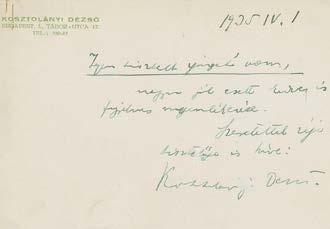 KOSZTOLÁNYI DEZSŐ
BUDAPEST, I., TÁBOR-UTCA 12.
TEL.:
1935 IV. 1
Igen tisztelt uram,
nagyon jól esett kedves és
figyelmes megemlékezése.
Szeretettel
tisztelője és híve:
Kosztolányi Dezső